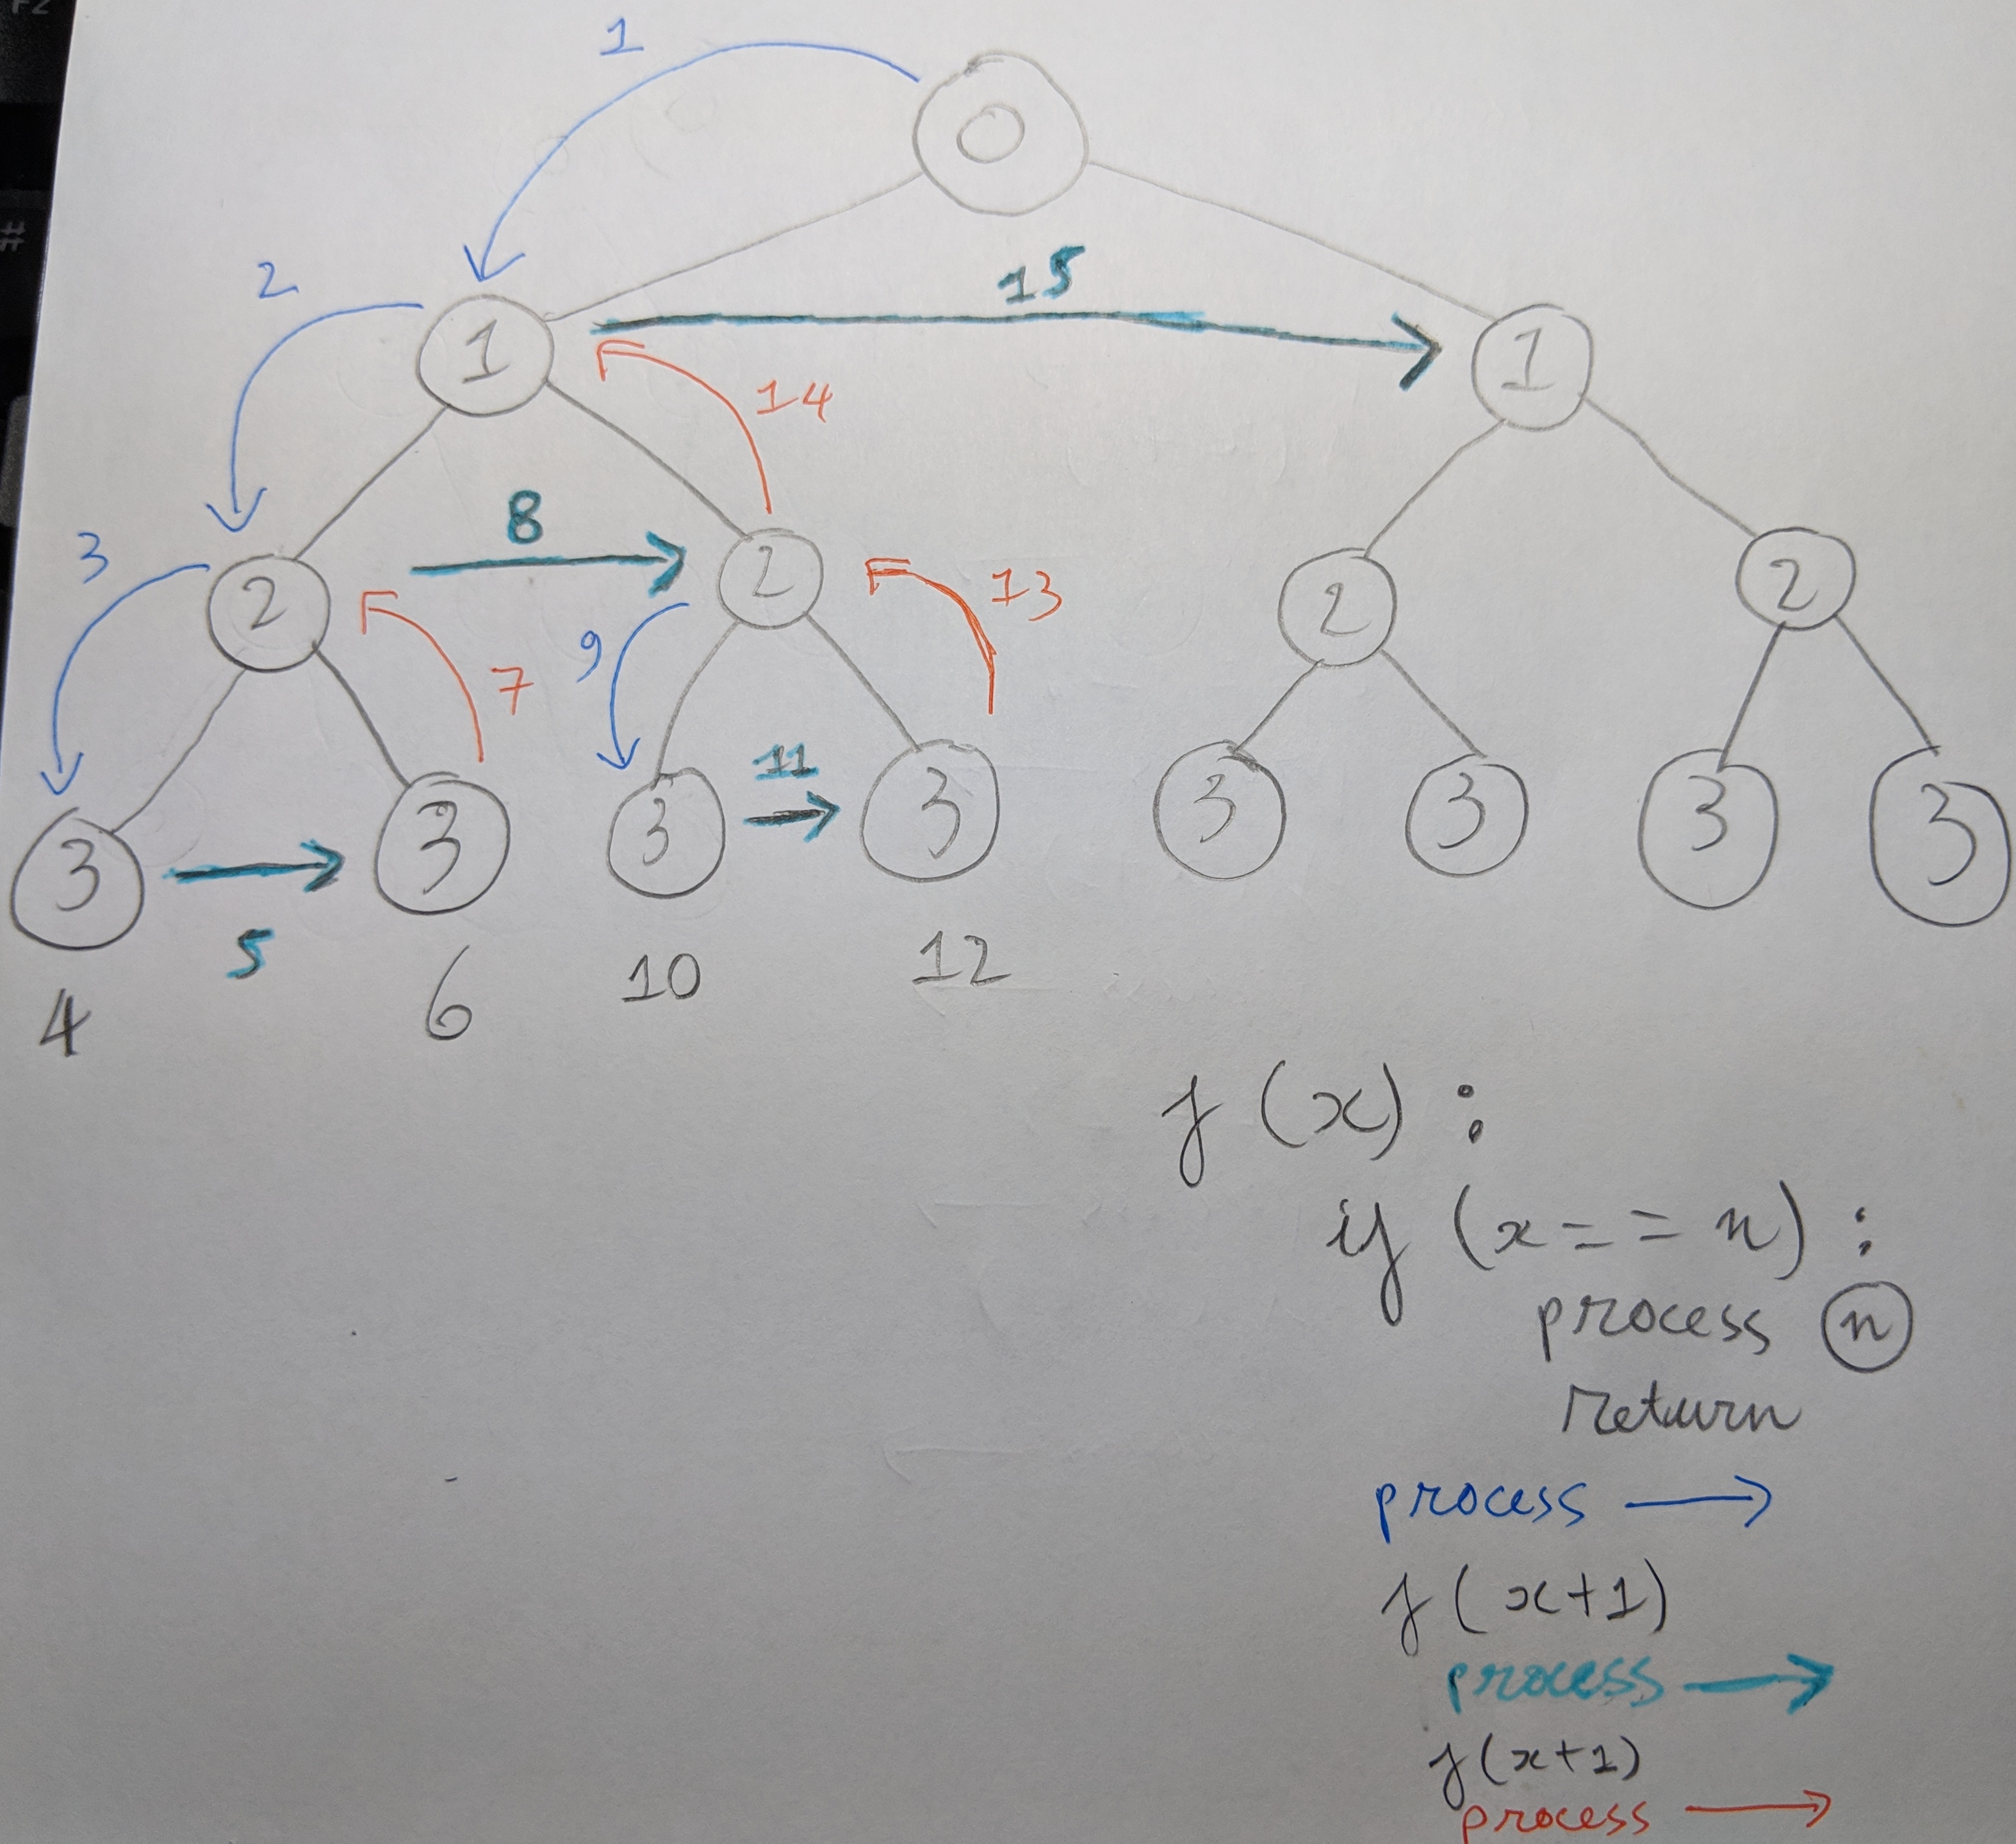 F2
#
1
0
2
15
1
1
14
3
8
2
2
13
2
2
9
7
11
3
3
3
3
3
3
3
3
5
4
6
10
12
f (x) :
if (x = = n) :
process n
return
process →
f ( x+1)
process →
f (x+1)
process →